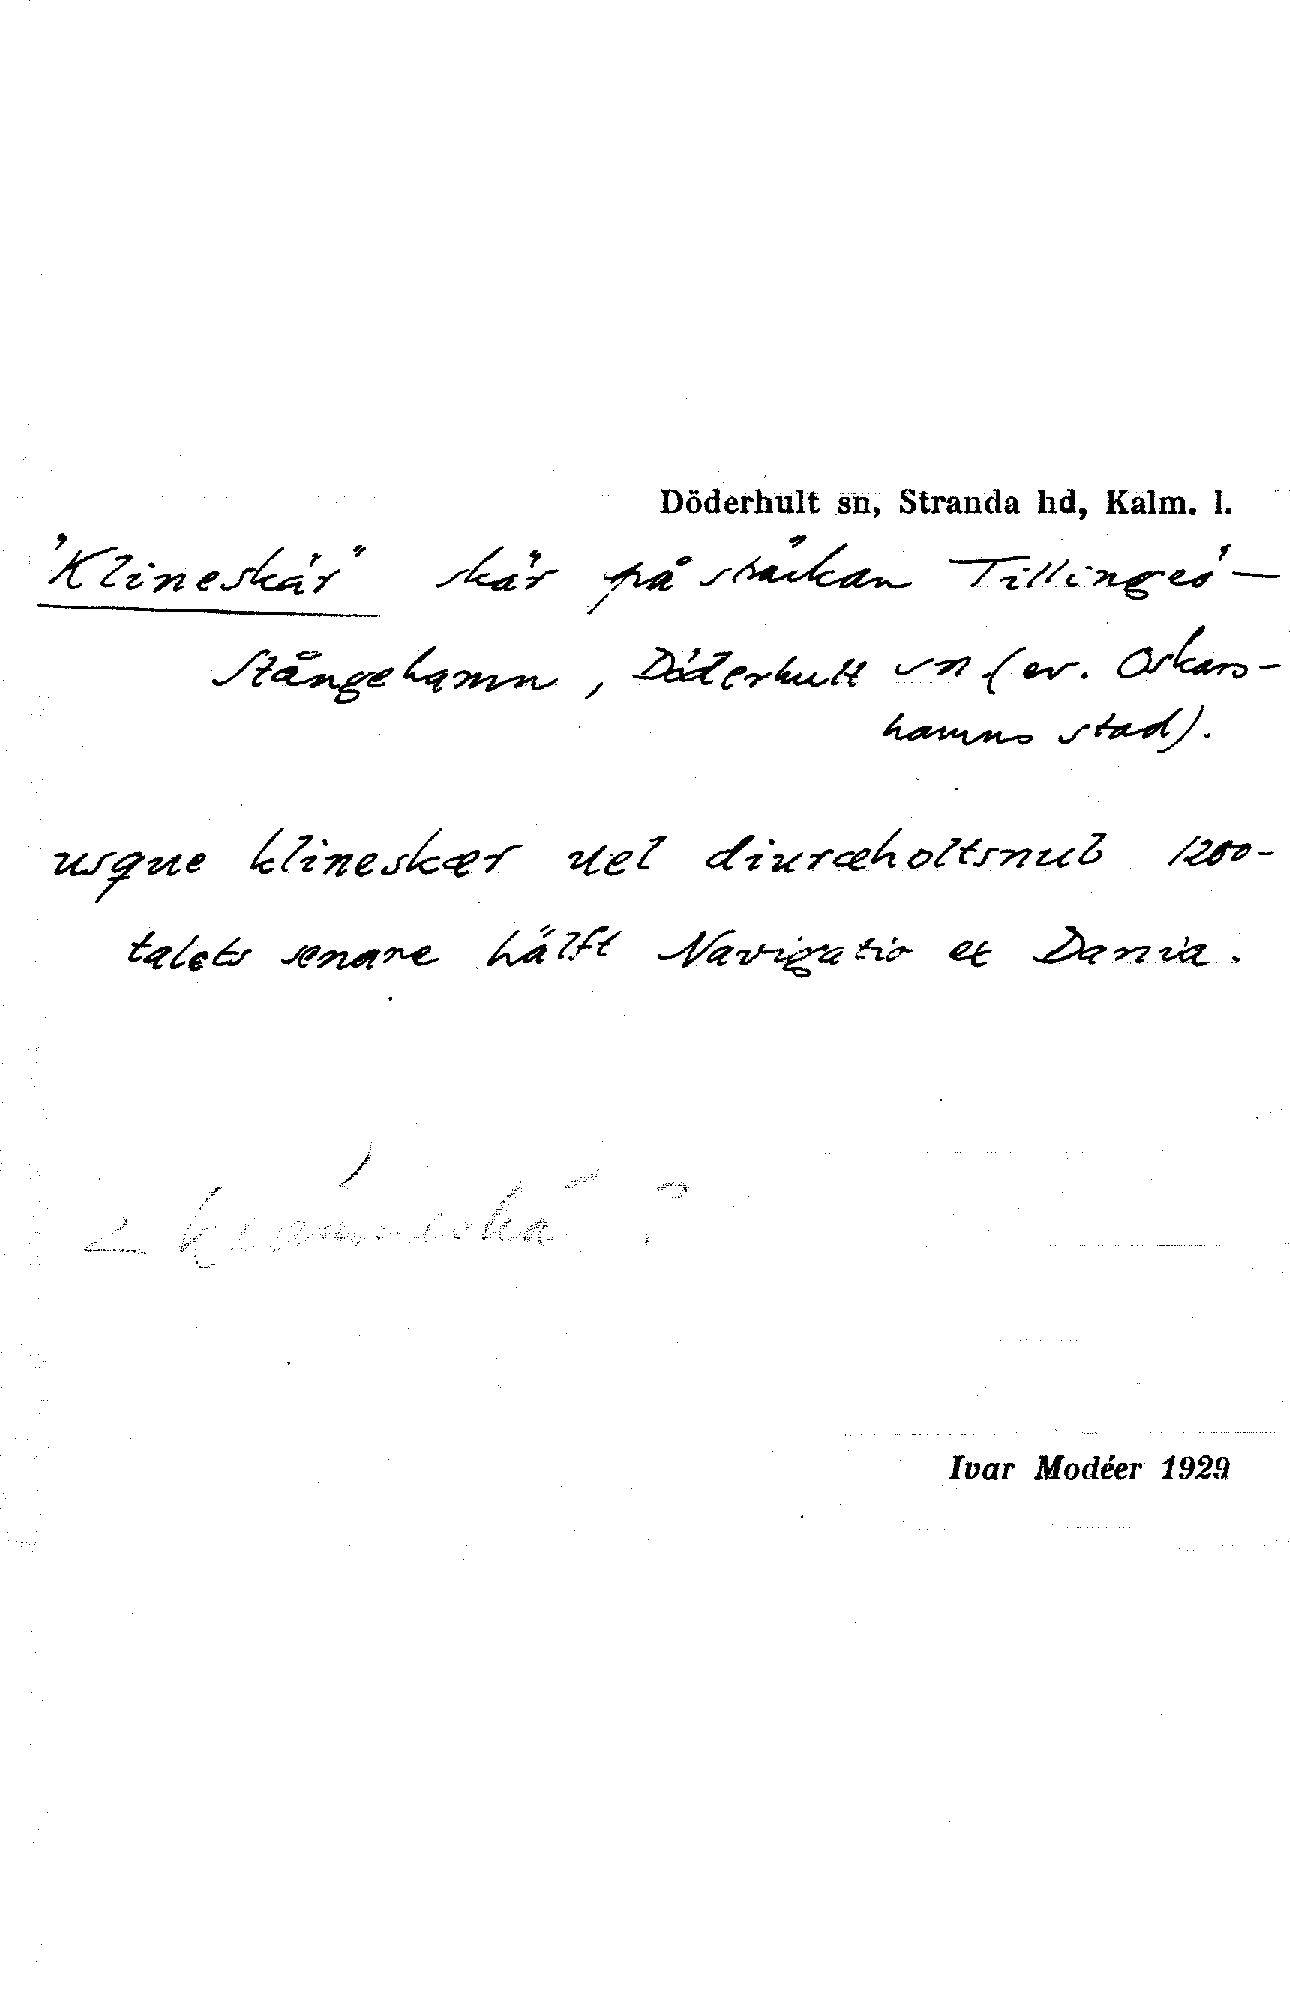 Döderhult sn, Stranda hd, Kalm. l.
"Klineskär" skär på sträckan Tillingeö—
Stångehamn, Döderhult sn (ev. Oskars-
hamns stad).
usque klineskær uel diuræholtsnub 1200-
talets senare hälft Navigatio et Dania.
?
Ivar Modéer 1929